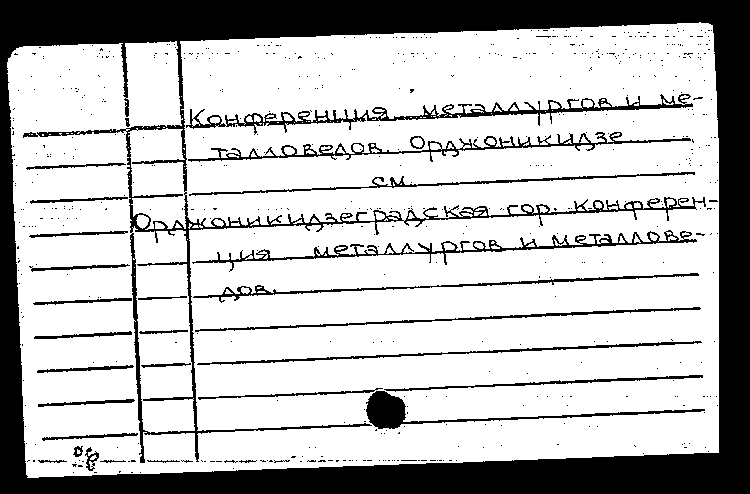 Конференция металлургов и ме-
талловедов. Орджоникидзе
см.
Орджоникидзеградская гор. конферен-
ция металлургов и металлове-
дов.